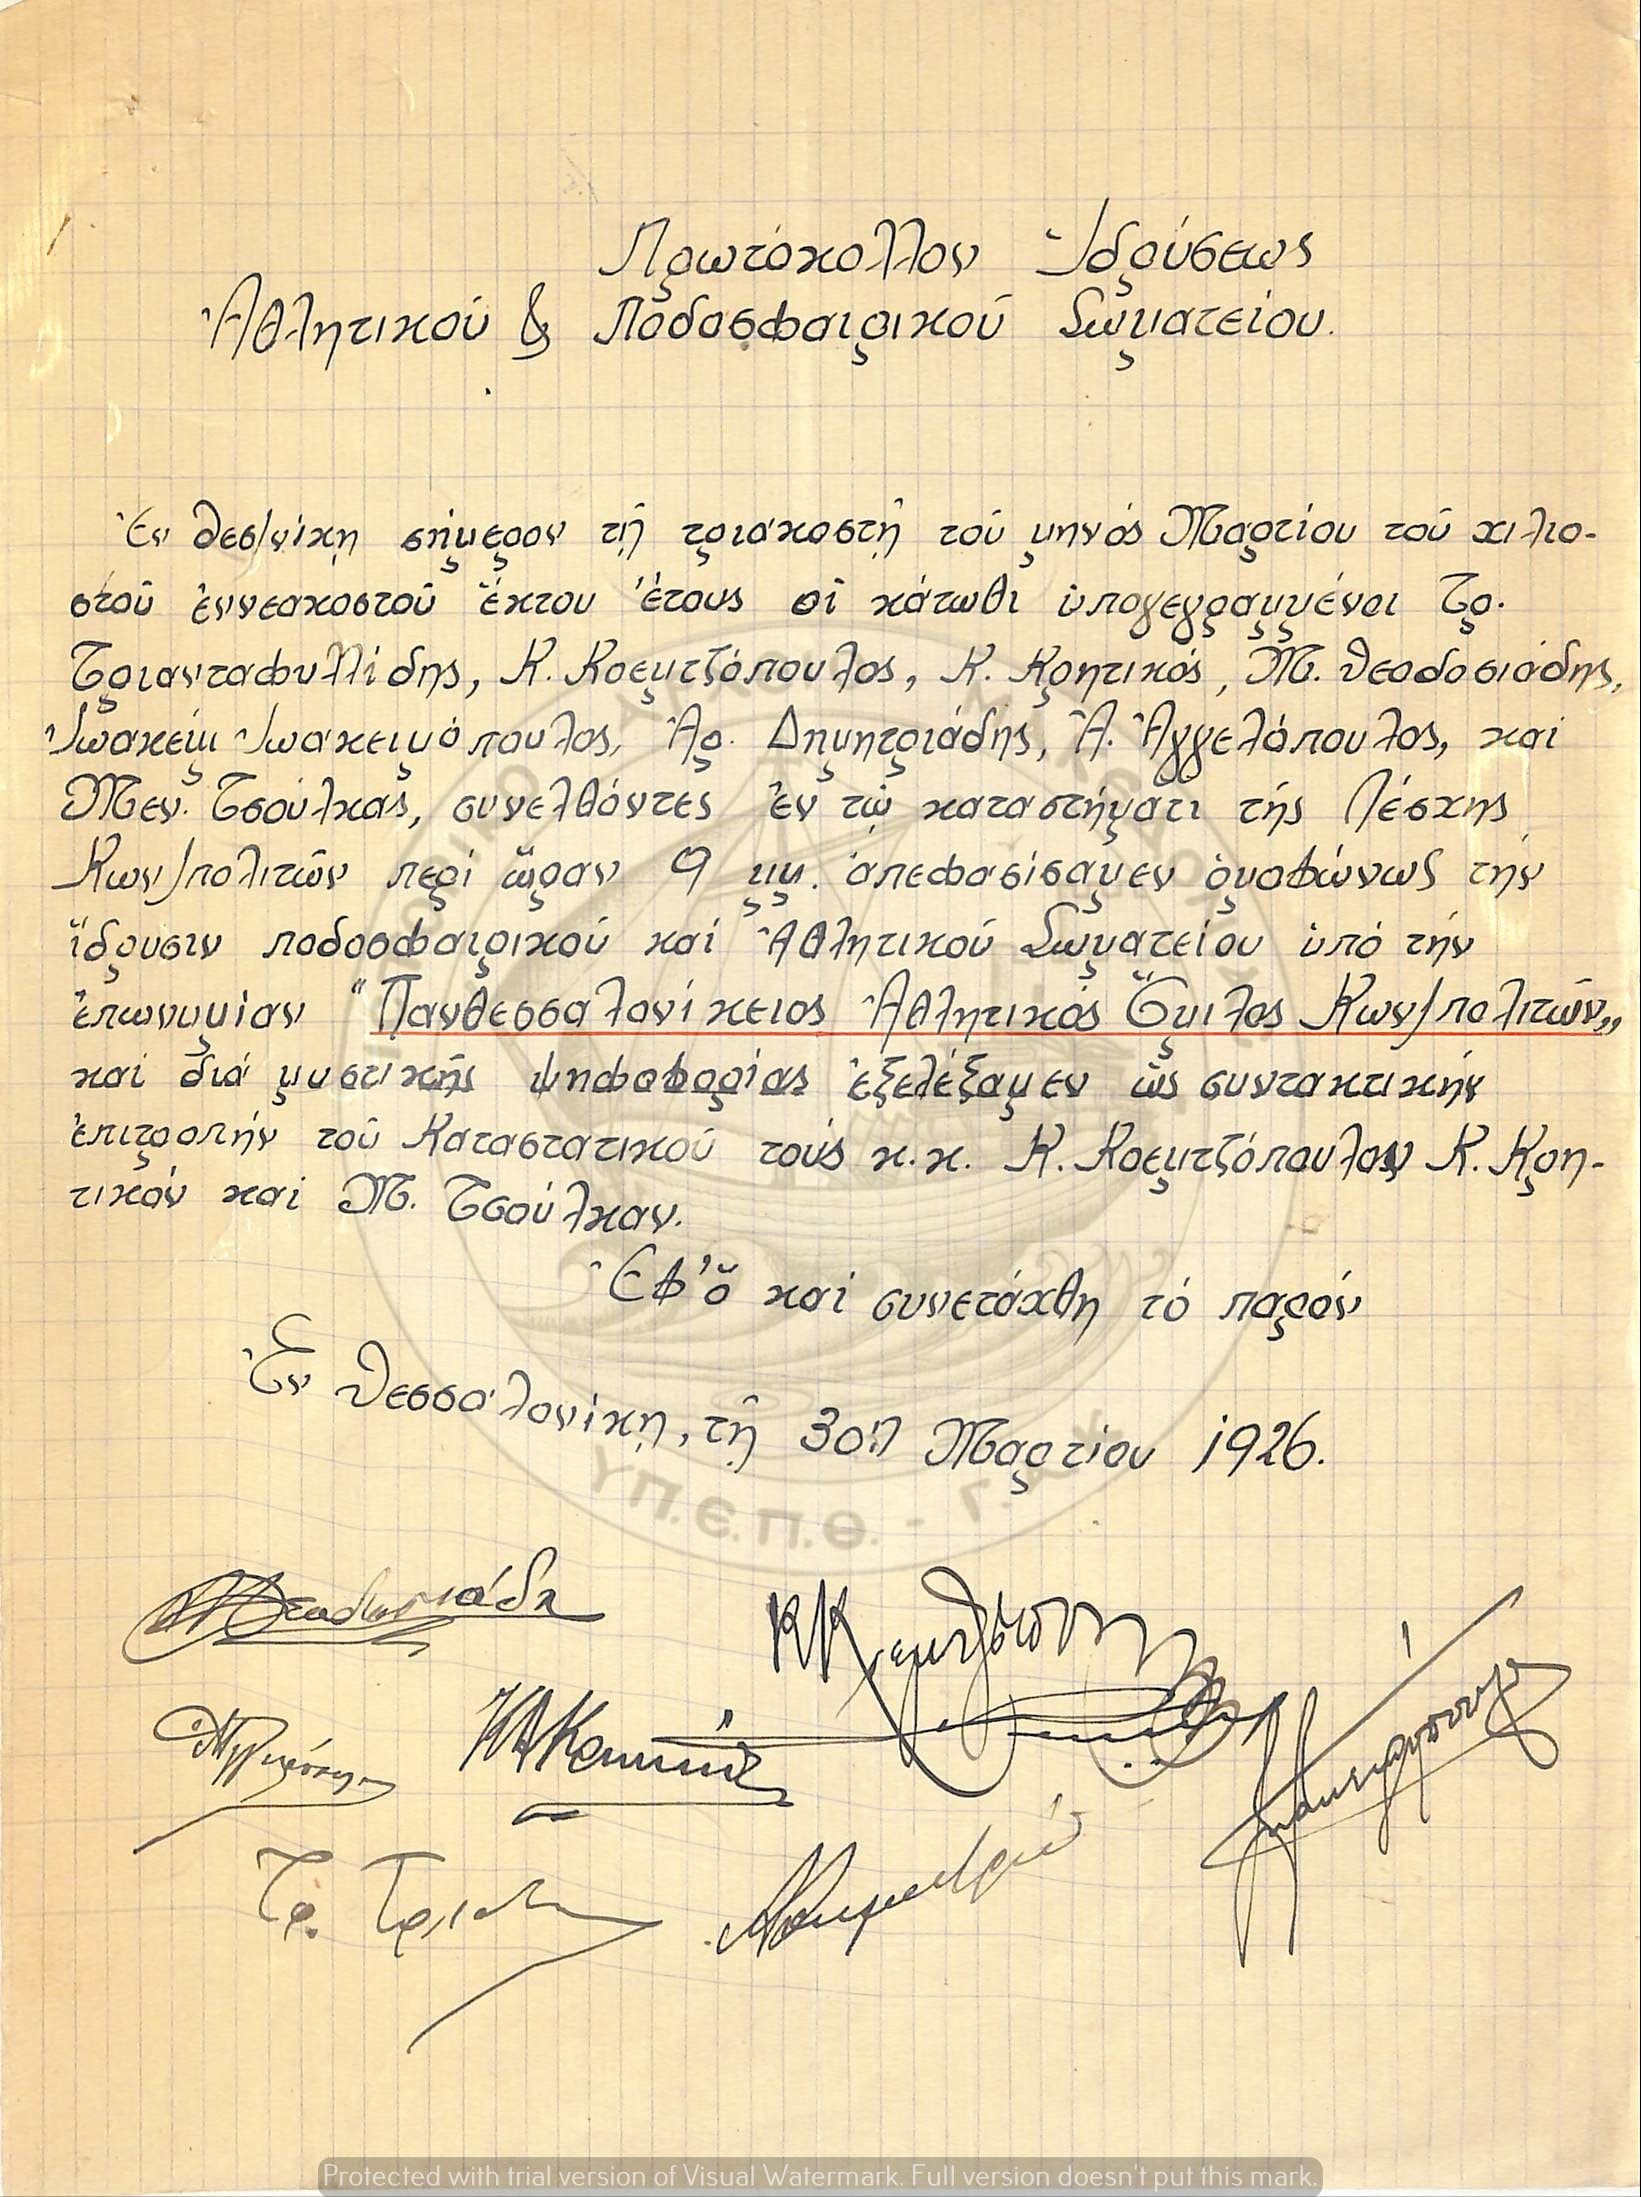 Πρωτόκολλον Ἱδρύσεως
Ἀθλητικοῦ & Ποδοσφαιρικοῦ Σωματείου.
Ἐν Θεσ/νίκῃ σήμερον τῇ τριακοστῇ τοῦ μηνός Μαρτίου τοῦ χιλιο-
στοῦ ἐννεακοστοῦ ἕκτου ἔτους οἱ κάτωθι ὑπογεγραμμένοι Τρ.
Τριανταφυλλίδης, Κ. Κοεμτζόπουλος, Κ. Κρητικός, Μ. Θεοδοσιάδης,
Ἰωακείμ Ἰωακειμόπουλος, Ἀρ. Δημητριάδης, Ἀ. Ἀγγελόπουλος, καί
Μεν. Τσούλκας, συνελθόντες ἐν τῷ καταστήματι τῆς Λέσχης
Κων/πολιτῶν περί ὥραν 9 μμ. ἀπεφασίσαμεν ὁμοφώνως τήν
ἵδρυσιν ποδοσφαιρικοῦ καί Ἀθλητικοῦ Σωματείου ὑπό τήν
ἐπωνυμίαν "Πανθεσσαλονίκειος Ἀθλητικός Ὅμιλος Κων/πολιτῶν„
καί διά μυστικῆς ψηφοφορίας ἐξελέξαμεν ὡς συντακτικήν
ἐπιτροπήν τοῦ Καταστατικοῦ τούς κ.κ. Κ. Κοεμτζόπουλον Κ. Κρη-
τικόν καί Μ. Τσούλκαν.
Ἐφ' ὅ καί συνετάχθη τό παρόν
Ἐν Θεσσαλονίκῃ, τῇ 30ῇ Μαρτίου 1926.
ΥΠ.Ε.Π.Θ. - Γ.
Τρ.
Protected with trial version of Visual Watermark. Full version doesn't put this mark.